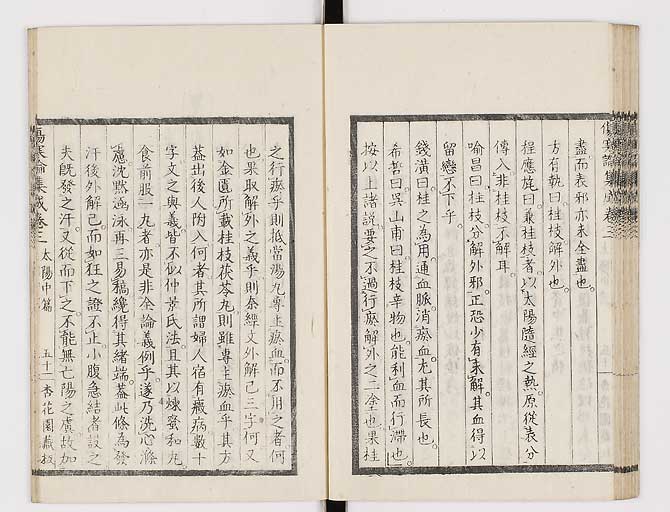 盡而表邪亦未全盡也
方有執曰桂枝解外也
程應旄曰兼桂枝者以太陽隨經之熱原從表分
傳入非桂枝不解耳
喻昌曰桂枝分解外邪正恐少有未解其血得以
留戀不下乎
錢潢曰桂之為用通血脈消瘀血尤其所長也
希哲曰吳山甫曰桂枝辛物也能利血而行滯也
按以上諸說要之不過行瘀解外之二全也果桂
之行瘀乎則抵當湯丸專主瘀血而不用之者何
也果取解外之義乎則本經文外解已三字何又
如金匱所載桂枝茯苓丸則雖專主瘀血乎其方
蓋出後人附入何者其所謂婦人宿有癥病數十
字文之與義皆不似仲景氏法且其以煉蜜和丸
食前服一丸者亦是非全論義例乎遂乃洗心滌
慮沈默過泳再三易稿纔得其緒端蓋此條為發
汗後外解已而如狂之證不止小腹急結者設之
夫既發之汗又從而下之不能無亡陽之虞故加
傷寒論集成卷三 太陽中篇 五十一 杏花園藏板
傷寒論集成卷三